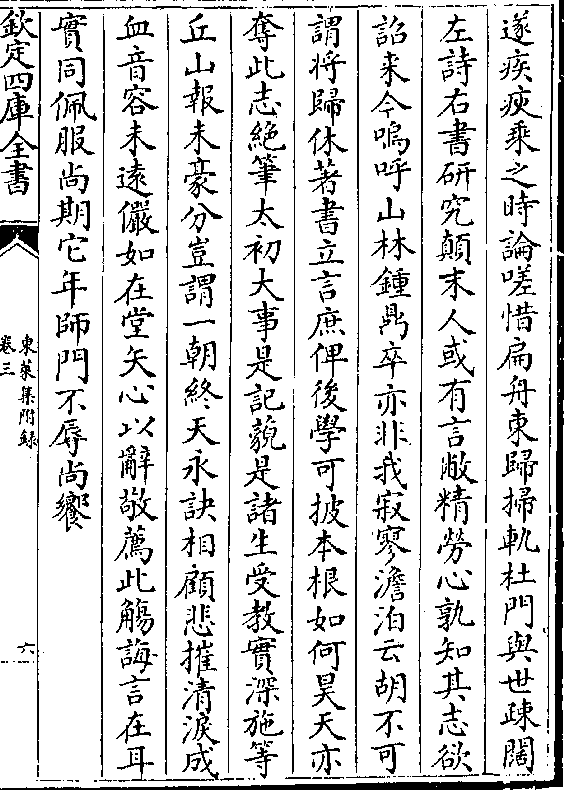 遂疾疢乘之時論嗟惜扁舟東歸掃軌杜門與世疎闊
左詩右書研究顛末人或有言敝精勞心孰知其志欲
詔来今嗚呼山林鍾鼎卒亦非我寂寥澹泊云胡不可
謂将歸休著書立言庶俾後學可披本根如何昊天亦
奪此志絶筆太初大事是記藐是諸生受教實深施等
丘山報未豪分豈謂一朝終天永訣相顧悲摧清淚成
血音容未遠儼如在堂矢心以辭敬薦此觴誨言在耳
實同佩服尚期它年師門不辱尚饗
欽定四庫全書
東萊集附録
卷三
六